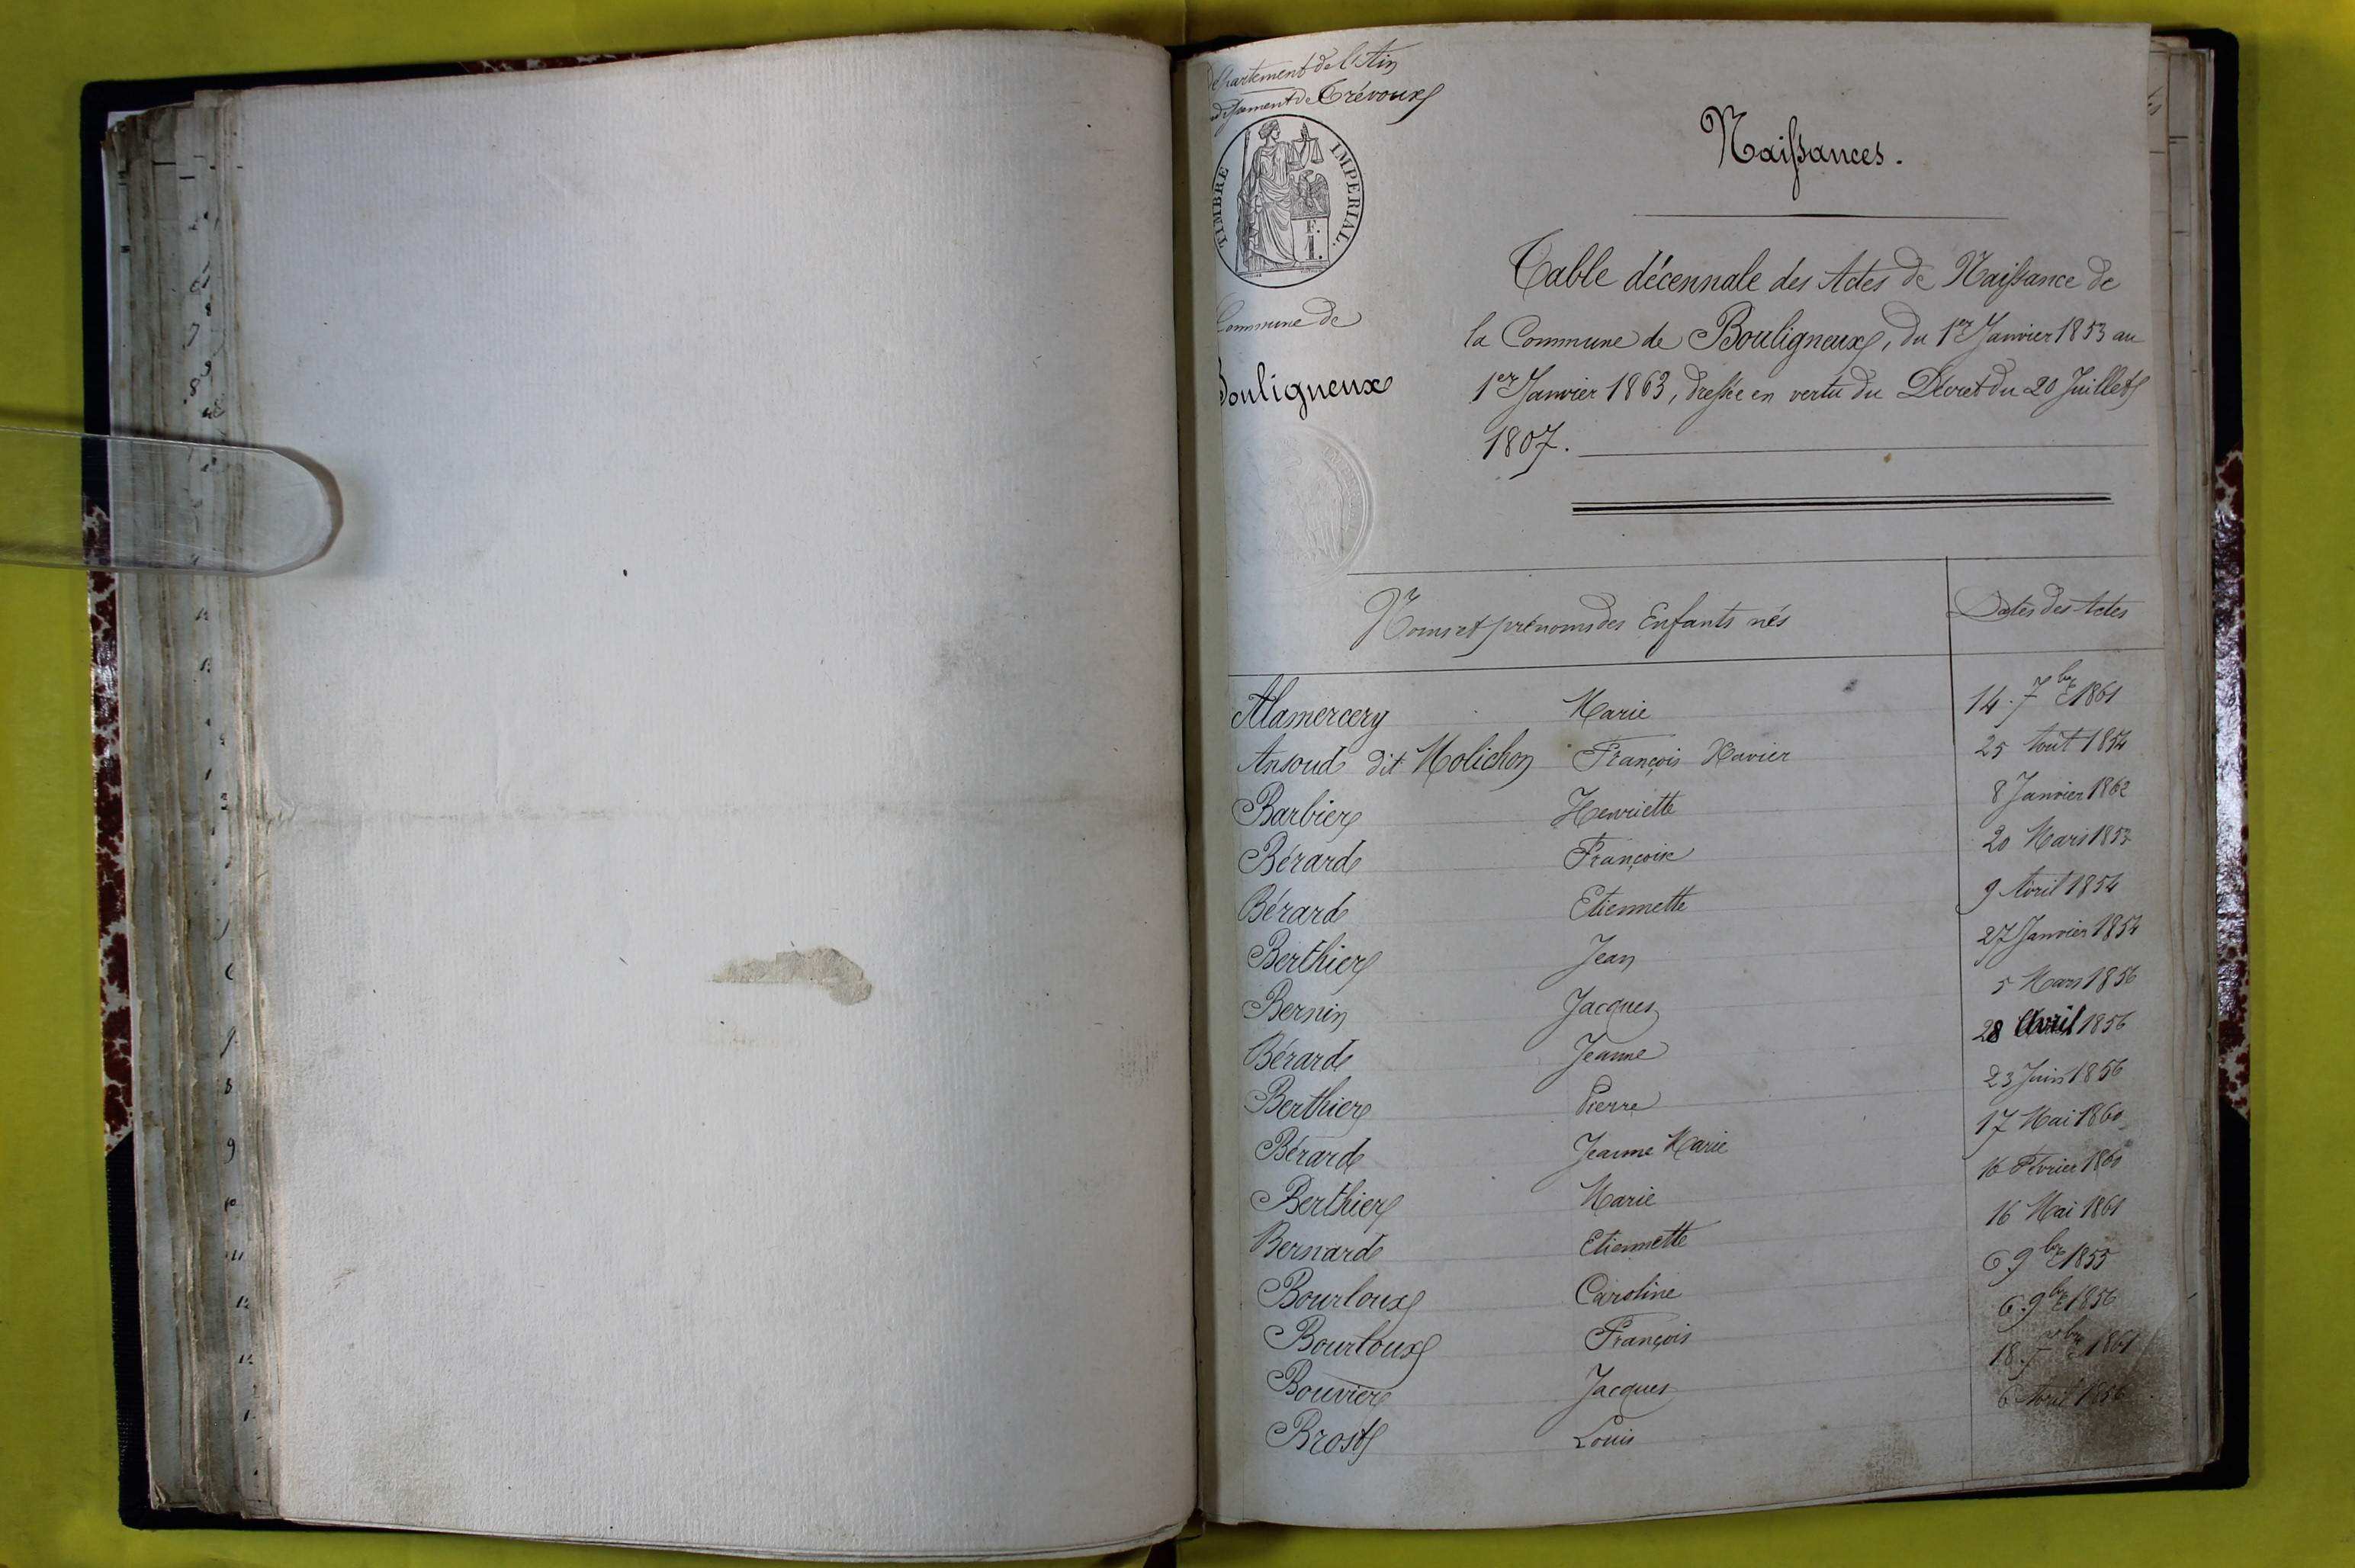 Département de l'Ain
Arrondissement de Trévoux
TIMBRE IMPERIAL.
F.
1.
Commune de
Bouligneux
Naissances.
Table décennale des Actes de Naissance de
la Commune de Bouligneux, du 1er Janvier 1853 au
1er Janvier 1863, dressée en vertu du Décret du 20 Juillet
1807.
Noms et prénoms des Enfants nés Dates des Actes
Alamercery Marie 14. 7bre 1861
Ansoud dit Molichon François Xavier 25 Août 1854
Barbier Henriette 8 Janvier 1862
Bérard Françoise 20 Mars 1853
Bérard Etiennette 9 Avril 1854
Berthier Jean 27 Janvier 1854
Bernin Jacques 5 Mars 1856
Bérard Jeanne 28 Avril 1856
Berthier Pierre 23 Juin 1856
Bérard Jeanne Marie 17 Mai 1860
Berthier Marie 16 Février 1860
Bernard Etiennette 16 Mai 1861
Bourloux Caroline 6 9bre 1855
Bourloux François 6. 9bre 1856
Bouvier Jacques 18. 7bre 1861
Brost Louis 6 Avril 1856